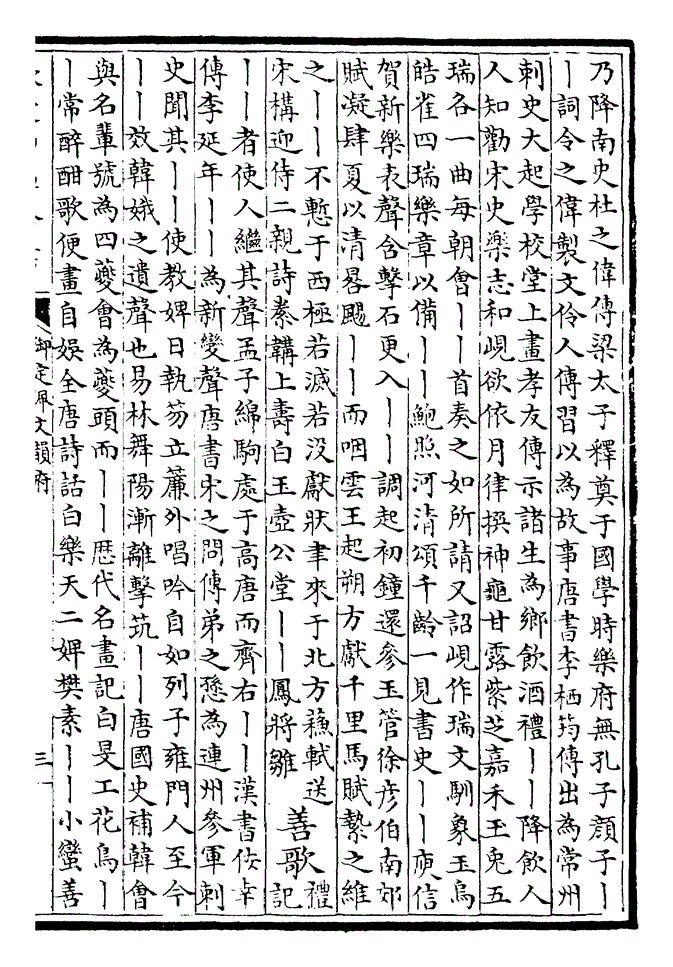 乃降南史杜之偉傳梁太子釋奠于國學時樂府無孔子顔子丨
丨詞令之偉製文伶人傳習以為故事唐書李栖筠傳出為常州
刺史大起學校堂上畫孝友傳示諸生為鄉飲酒禮丨丨降飲人
人知勸宋史樂志和峴欲依月律撰神龜甘露紫芝嘉禾玉兎五
瑞各一曲每朝會丨丨首奏之如所請又詔峴作瑞文馴象玉烏
皓雀四瑞樂章以備丨丨鮑照河清頌千齡一見書史丨丨庾信
賀新樂表聲含擊石更入丨丨調起初鐘還參玉管徐彦伯南郊
賦凝肆夏以清畧颺丨丨而咽雲王起朔方獻千里馬賦縶之維
之丨丨不慙于西極若滅若没獻狀聿來于北方蘓軾送
宋構迎侍二親詩韝上壽白玉壺公堂丨丨鳳將雛
善歌
禮
記
丨丨者使人繼其聲孟子綿駒處于高唐而齊右丨丨漢書佞幸
傳李延年丨丨為新變聲唐書宋之問傳弟之愻為連州參軍刺
史聞其丨丨使教婢日執笏立簾外唱吟自如列子雍門人至今
丨丨效韓娥之遺聲也易林舞陽漸離擊筑丨丨唐國史補韓會
與名輩號為四夔會為夔頭而丨丨歴代名畫記白旻工花鳥丨
丨常醉酣歌便畫自娛全唐詩話白樂天二婢樊素丨丨小蠻善
御定佩文韻府
三